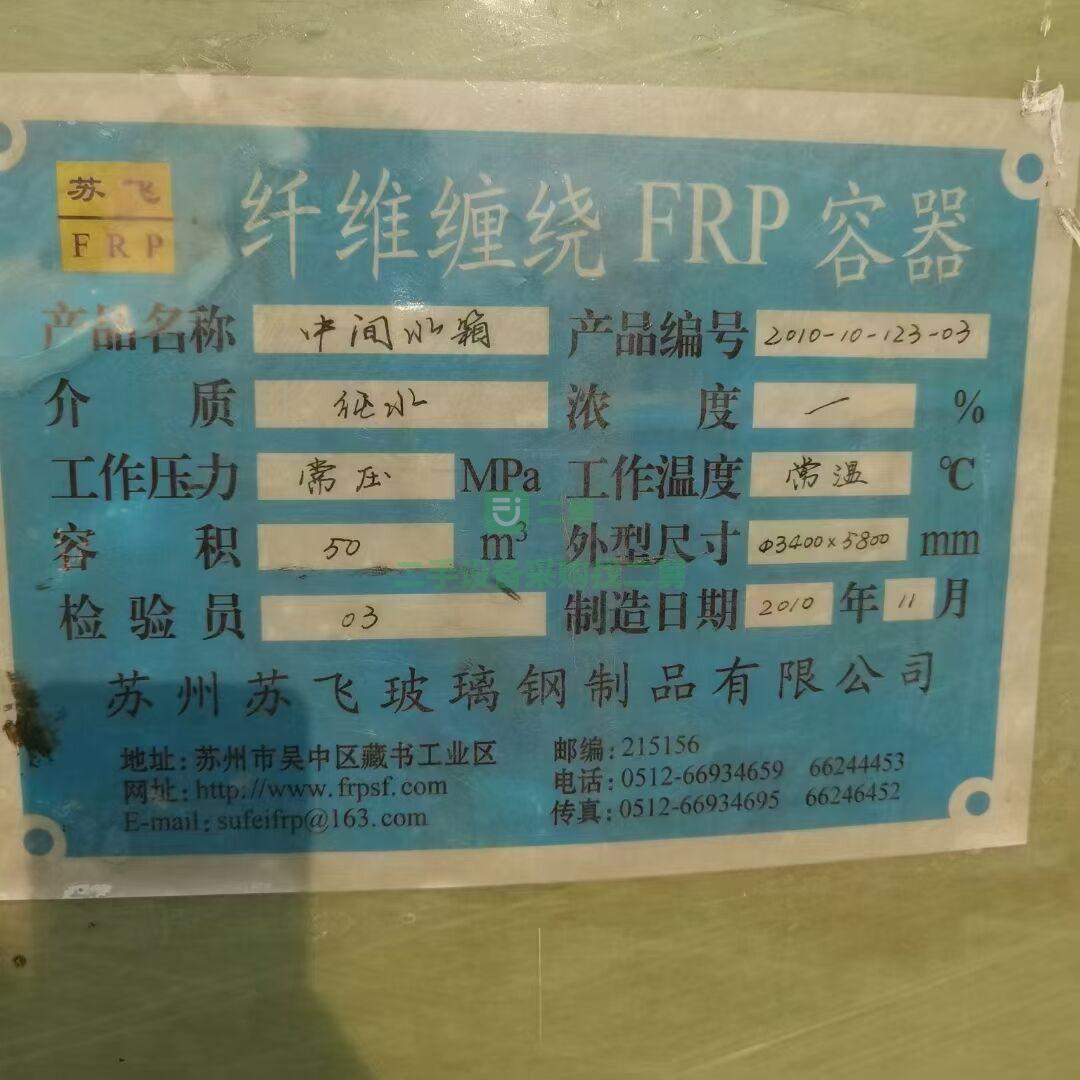 苏飞
FRP
纤维缠绕FRP容器
产品名称 中间水箱 产品编号 2010-10-123-03
介质 纯水 浓度 — %
工作压力 常压 MPa 工作温度 常温 ℃
容积 50 m³ 外型尺寸 Φ3400×5800 mm
检验员 03 制造日期 2010 年 11 月
苏州苏飞玻璃钢制品有限公司
地址:苏州市吴中区藏书工业区 邮编:215156
网址:http://www.frpsf.com 电话:0512-66934659 66244453
E-mail:sufeifrp@163.com 传真:0512-66934695 66246452